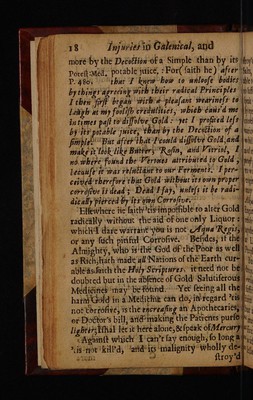 18 Injuries in Galenical, and
more by the Decoction of a Simple than by its
Potest. Med. potable juice, : For( saith he ) after
P. 480. that I knew how to unloose bodies
by things agreeing with their radical Principles
I then first began with a pleasant weariness to
laugh at my foolish credulities, which caus'd me
in times past to dissolve Gold : yet I profited less
by its potable juice, than by the Decoction of a
simple. But after that I could dissolve Gold, and
make it look like Butter, Rosin, and Vitriol, I
no where found the Vertues attributed to Gold,
because it was reluctant to our Ferment. I per-
ceived therefore that Gold without its own proper
corrosive is dead ; Dead I say, unless it be radi-
dically pierced by its own Corrosive.
Elsewhere he saith 'tis impossible to alter Gold
radically without the aid of one only Liquor :
which I dare warrant you is not Aqua Regis,
or any such pitiful Corrosive. Besides, it the
Almighty, who is the God of the Poor as well
as Rich, hath made all Nations of the Earth cur-
able as saith the Holy Scriptures. it need not be
doubted but in the absence of Gold Salutiferous
Medicines may be found. Yet seeing all the
harm Gold in a Medicine can do, in regard 'tis
not corrosive, is the encreasing an Apothecaries,
or Doctor's bill, and making the Patients purse
lighter; I shal let it here alone, & speak of Mercury
Against which I can't say enough, so long a
is not kill'd, and its malignity wholly de-
stroy'd